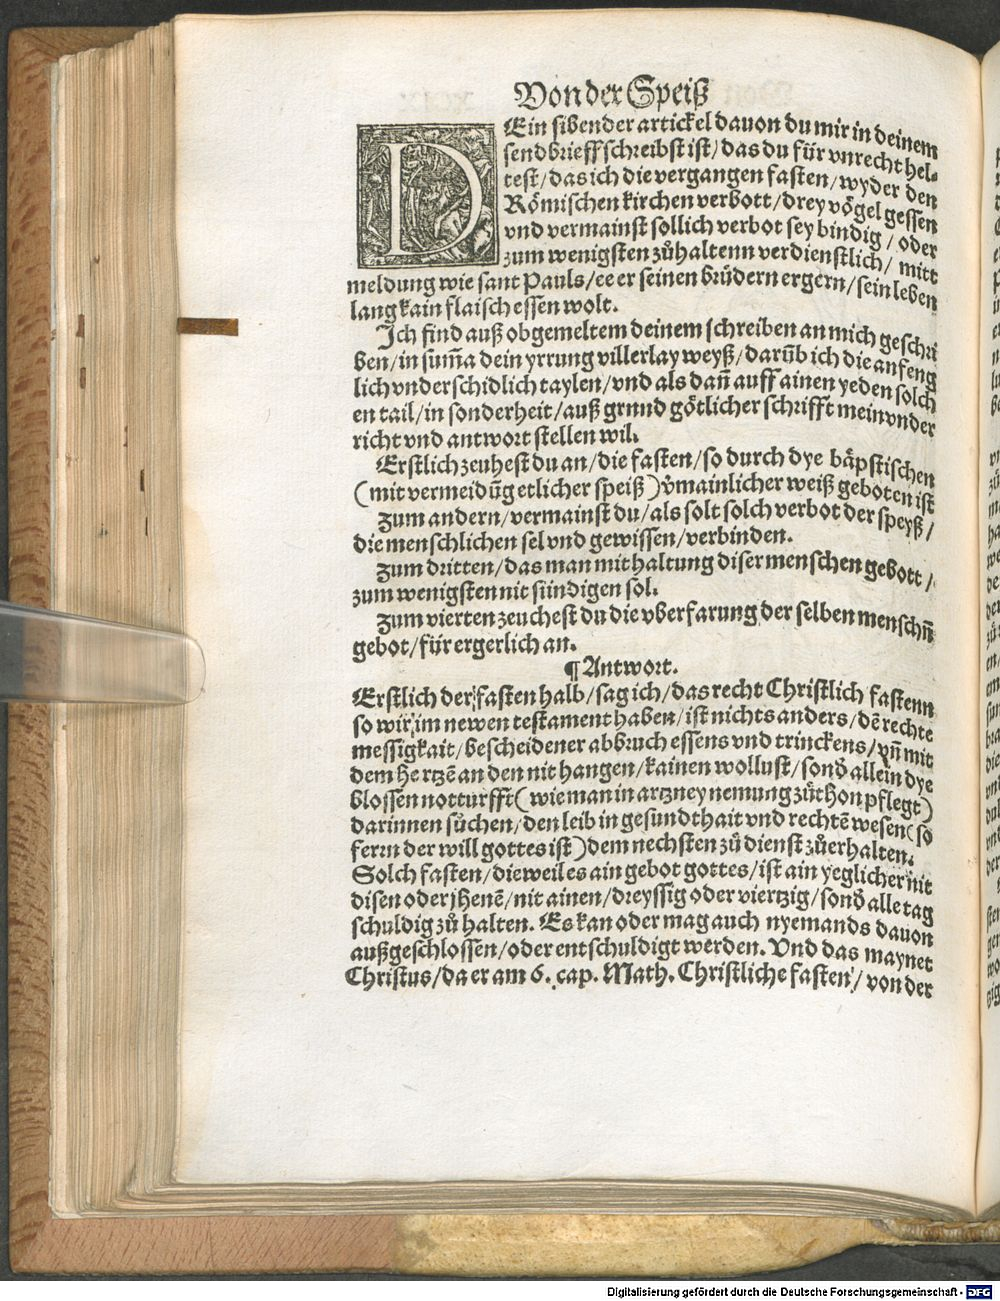 Von der Speiß
DEin sibender artickel dauon du mir in deinem
sendbrieff schreibst ist/ das du für vnrecht hel-
test/ das ich die vergangen fasten/ wyder den
Römischen kirchen verbott/ drey vögel gessen
vnd vermainst sollich verbot sey bindig/ oder
zum wenigsten zůhaltenn verdienstlich/ mitt
meldung wie sant Pauls/ ee er seinen brüdern ergern/ sein leben
lang kain flaisch essen wolt.
Ich find auß obgemeltem deinem schreiben an mich geschri
ben/ in sum̃a dein yrrung villerlay weyß/ darũb ich die anfeng
lich vnderschidlich taylen/ vnd als dañ auff ainen yeden solch
en tail/ in sonderheit/ auß grund götlicher schrifft mein vnder
richt vnd antwort stellen wil.
Erstlich zeuhest du an/ die fasten/ so durch dye bäpstischen
(mit vermeidũg etlicher speiß) v̊mainlicher weiß geboten ist
Zum andern/ vermainst du/ als solt solch verbot der speyß/
die menschlichen sel vnd gewissen/ verbinden.
Zum dritten/ das man mit haltung diser menschen gebott/
zum wenigsten nit sündigen sol.
Zum vierten zeuchest du die vberfarung der selben menschñ
gebot/ für ergerlich an.
¶ Antwort.
Erstlich der fasten halb/ sag ich/ das recht Christlich fastenn
so wir im newen testament haben/ ist nichts anders/ dẽ rechte
messigkait/ bescheidener abbruch essens vnd trinckens/ vñ mit
dem hertzẽ an den nit hangen/ kainen wollust/ sond̕ allein dye
blossen notturfft (wie man in artzney nemung zůthon pflegt)
darinnen sůchen/ den leib in gesundthait vnd rechtẽ wesen (so
ferrn der will gottes ist) dem nechsten zů dienst zůerhalten.
Solch fasten/ dieweil es ain gebot gottes/ ist ain yeglicher nit
disen oder jhenẽ/ nit ainen/ dreyssig oder viertzig/ sond̕ alle tag
schuldig zů halten. Es kan oder mag auch nyemands dauon
außgeschlossen/ oder entschuldigt werden. Vnd das maynet
Christus/ da er am 6. cap. Math. Christliche fasten/ von der
Digitalisierung gefördert durch die Deutsche Forschungsgemeinschaft - DFG